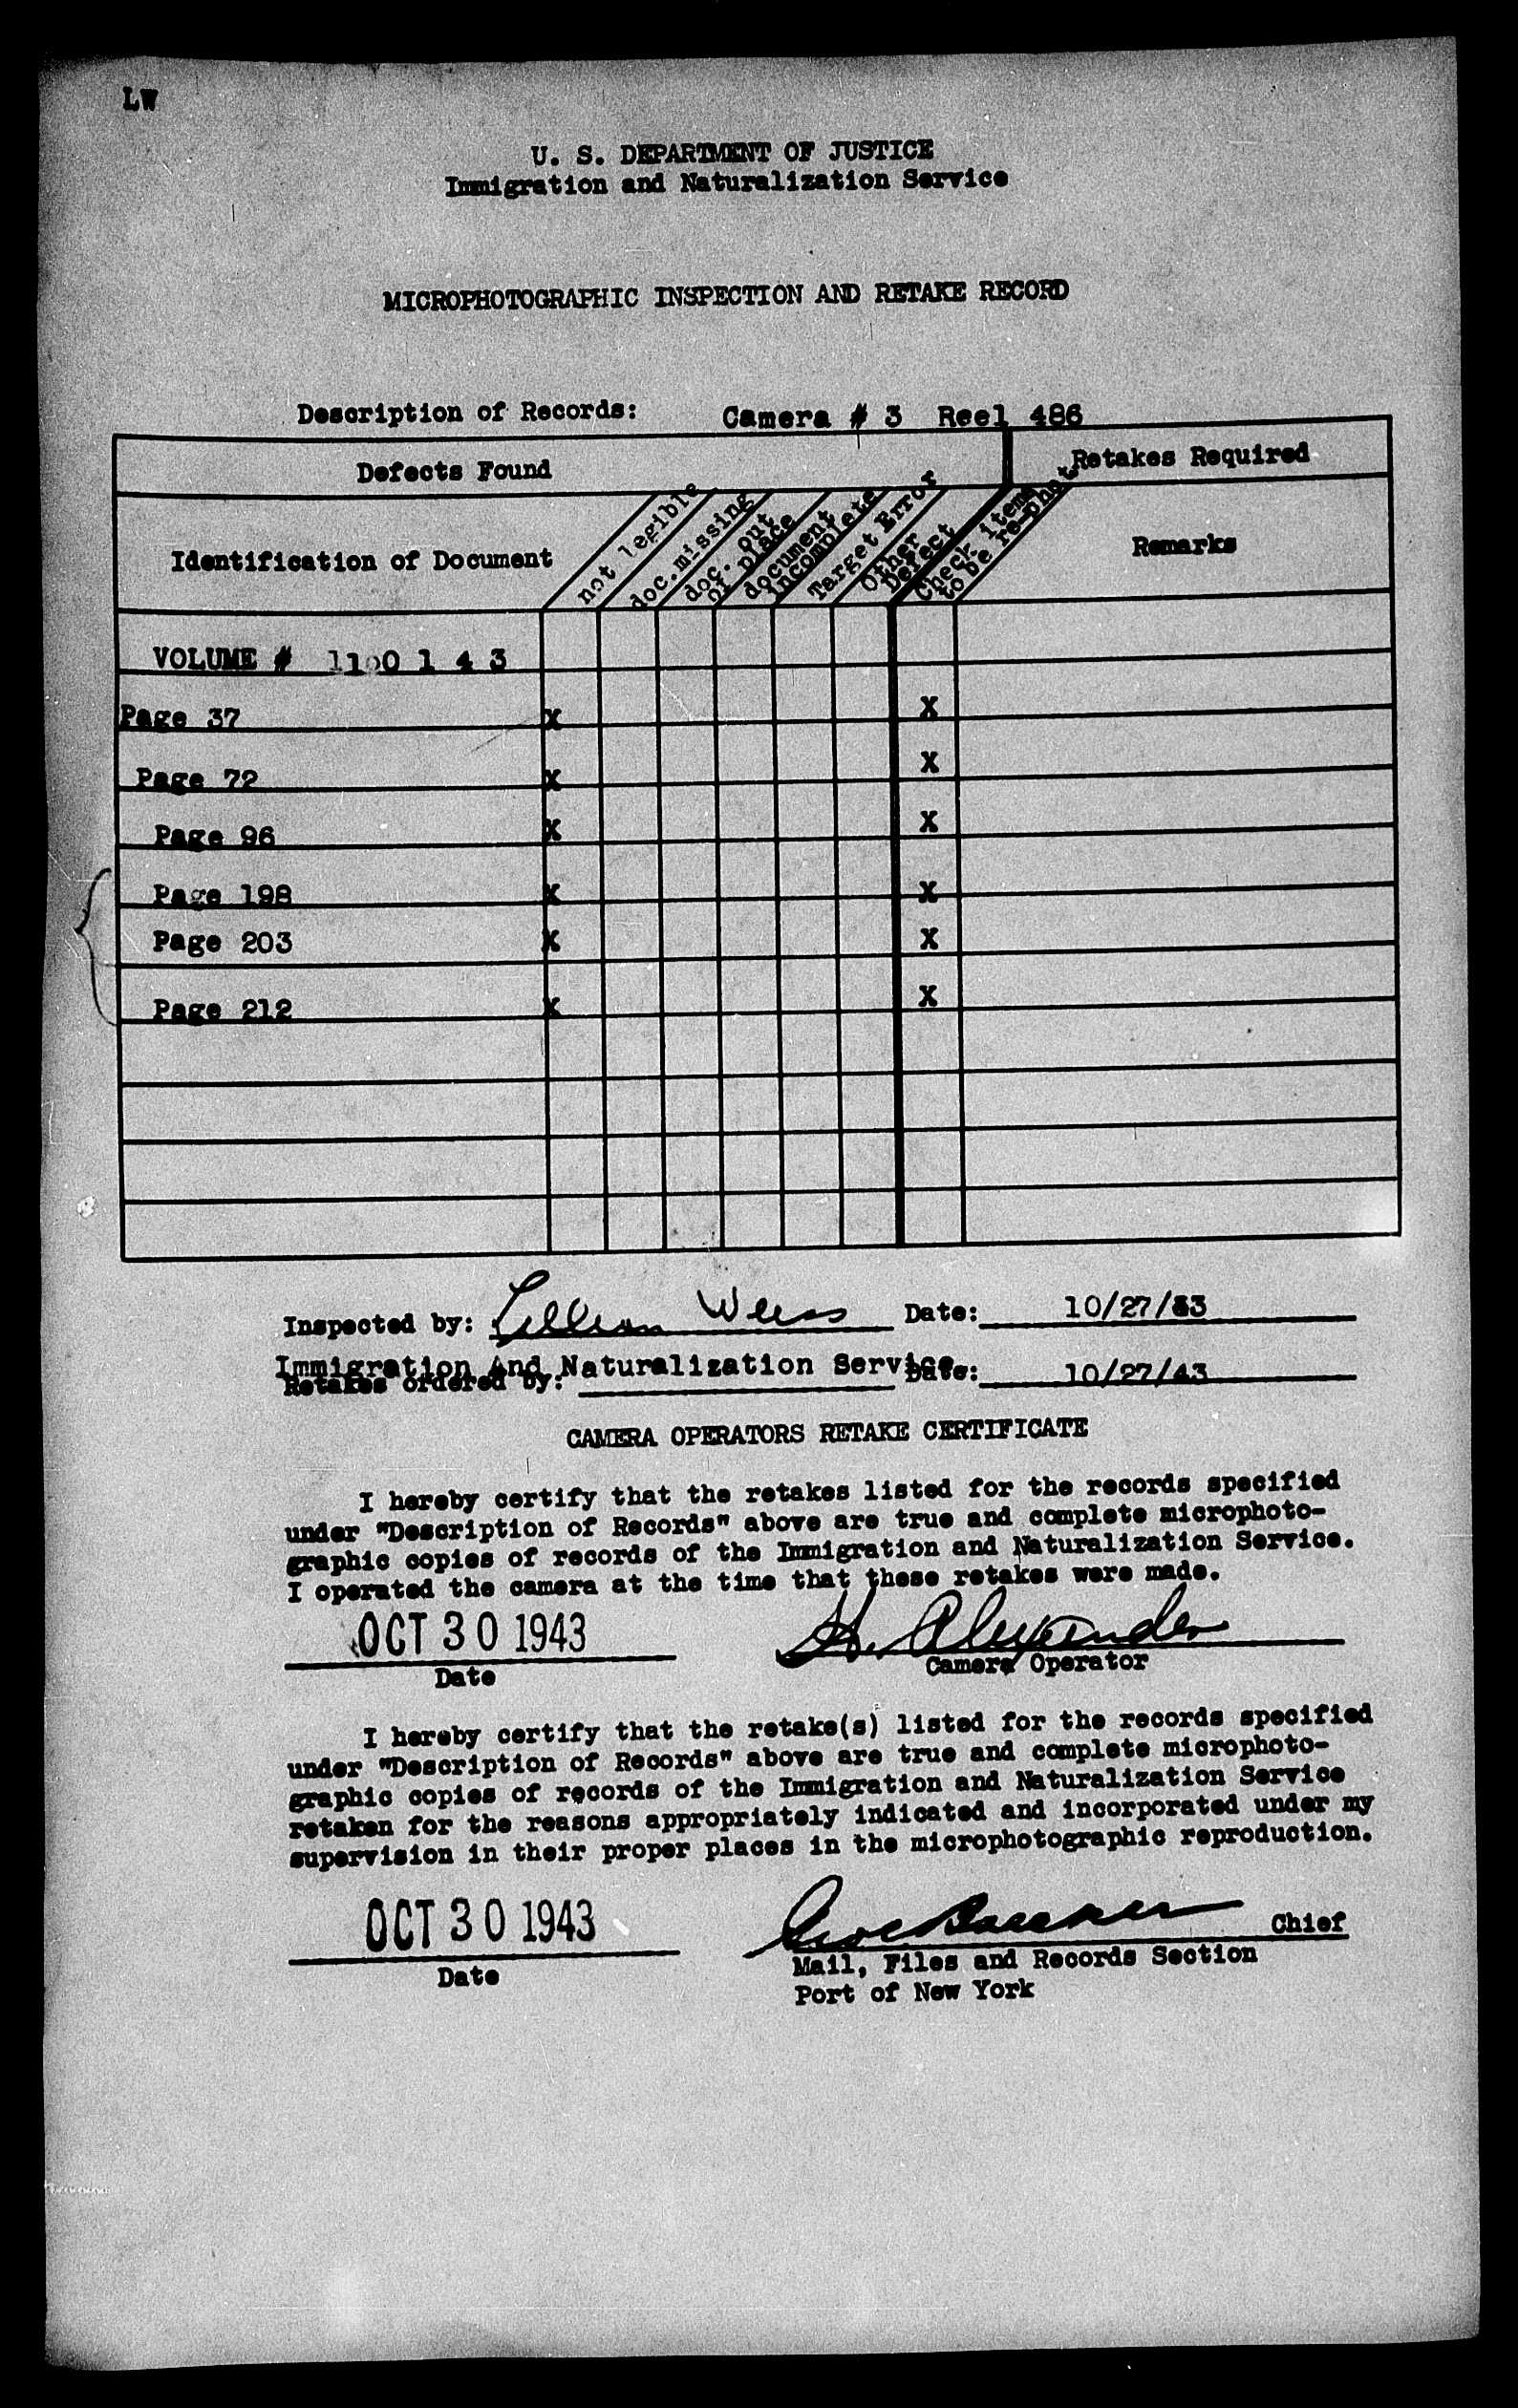 LW
U. S. DEPARTMENT OF JUSTICE
Immigration and Naturalization Service
MICROPHOTOGRAPHIC INSPECTION AND RETAKE RECORD
Description of Records: Camera # 3 Reel 486
Defects Found
Retakes Required
Identification of Document
not legible
doc. missing
doc. out
of place
document
incomplete
Target Error
Other
Defect
Check items
to be re-phot
Remarks
VOLUME # 1100 1 4 3
Page 37 X X
Page 72 X X
Page 96 X X
Page 198 X X
Page 203 X X
Page 212 X X
Inspected by: Lillian Weiss Date: 10/27/33
Immigration And Naturalization Service
Retakes ordered by: Date: 10/27/43
CAMERA OPERATORS RETAKE CERTIFICATE
I hereby certify that the retakes listed for the records specified
under "Description of Records" above are true and complete microphoto-
graphic copies of records of the Immigration and Naturalization Service.
I operated the camera at the time that these retakes were made.
OCT 30 1943 H. Alexander
Date Camera Operator
I hereby certify that the retake(s) listed for the records specified
under "Description of Records" above are true and complete microphoto-
graphic copies of records of the Immigration and Naturalization Service
retaken for the reasons appropriately indicated and incorporated under my
supervision in their proper places in the microphotographic reproduction.
OCT 30 1943 Chief
Date
Mail, Files and Records Section
Port of New York